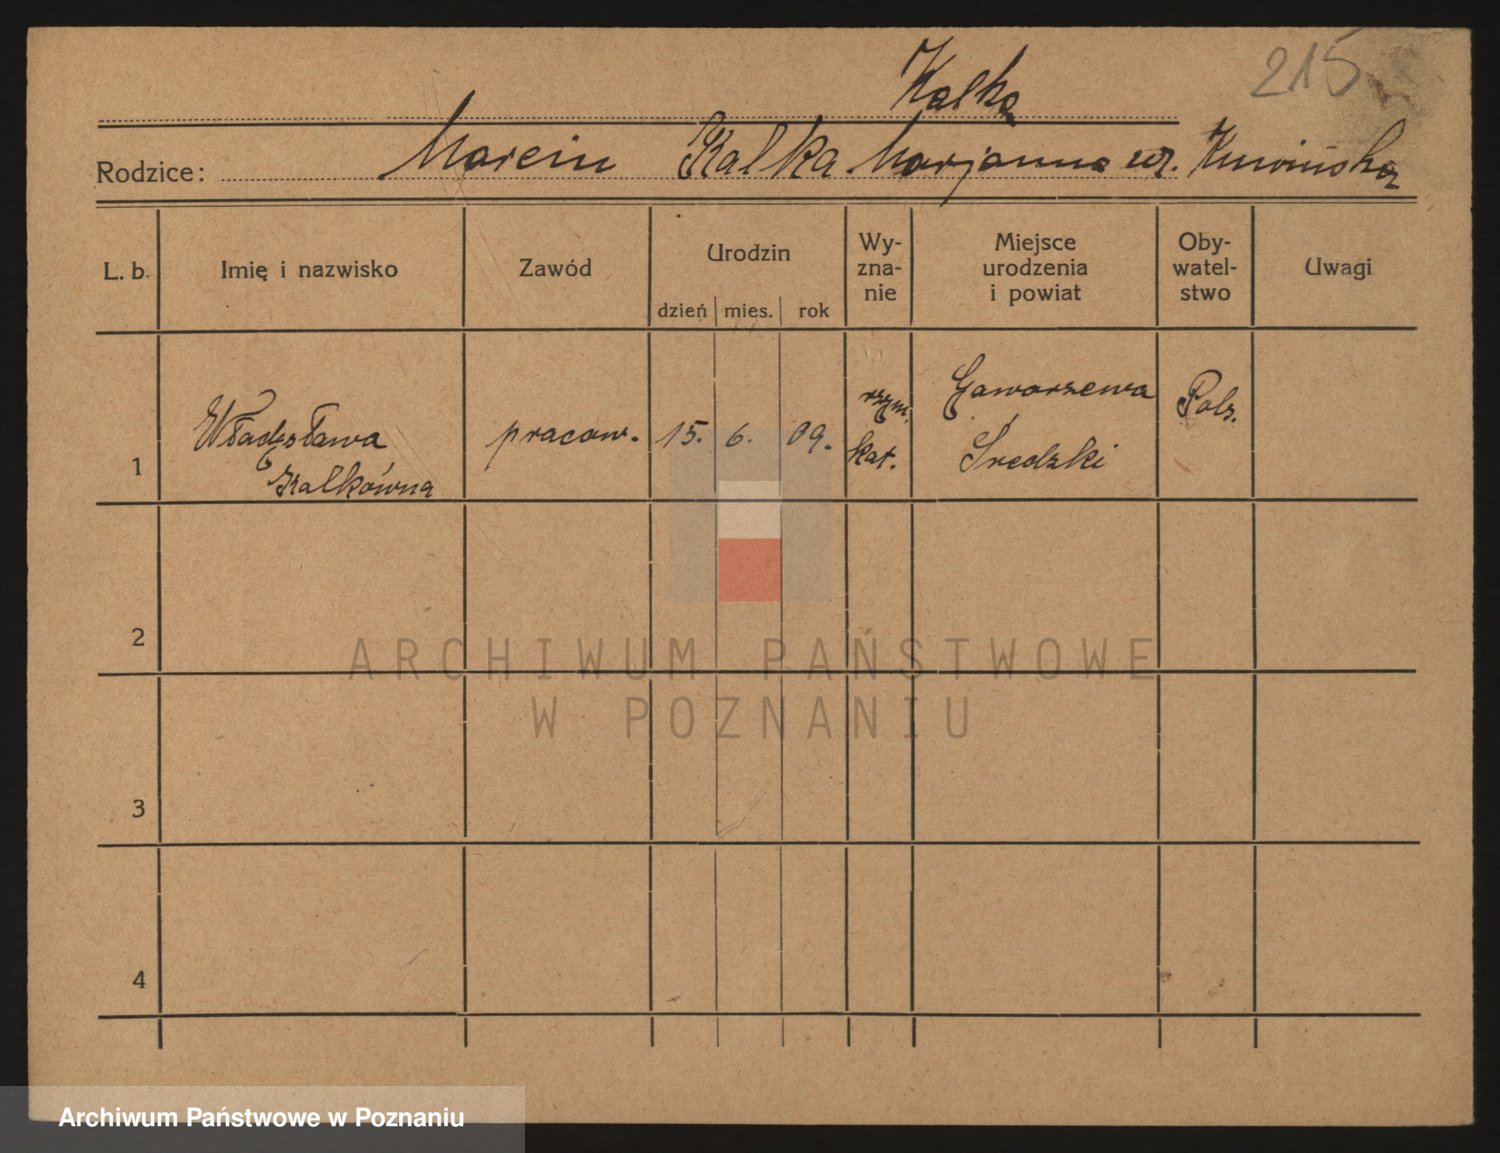 215
Kalka
Rodzice: Marcin Kalka Marjanna ur.
L. b. Imię i nazwisko Zawód Urodzin Wy-zna-nie Miejsce urodzenia i powiat Oby-watel-stwo Uwagi
dzień mies. rok
1 Władysława Kalkówna pracow. 15. 6. 09. rzym. kat. Gaworzewa Średzki Pols.
2
3
4
ARCHIWUM PAŃSTWOWE
W POZNANIU
Archiwum Państwowe w Poznaniu